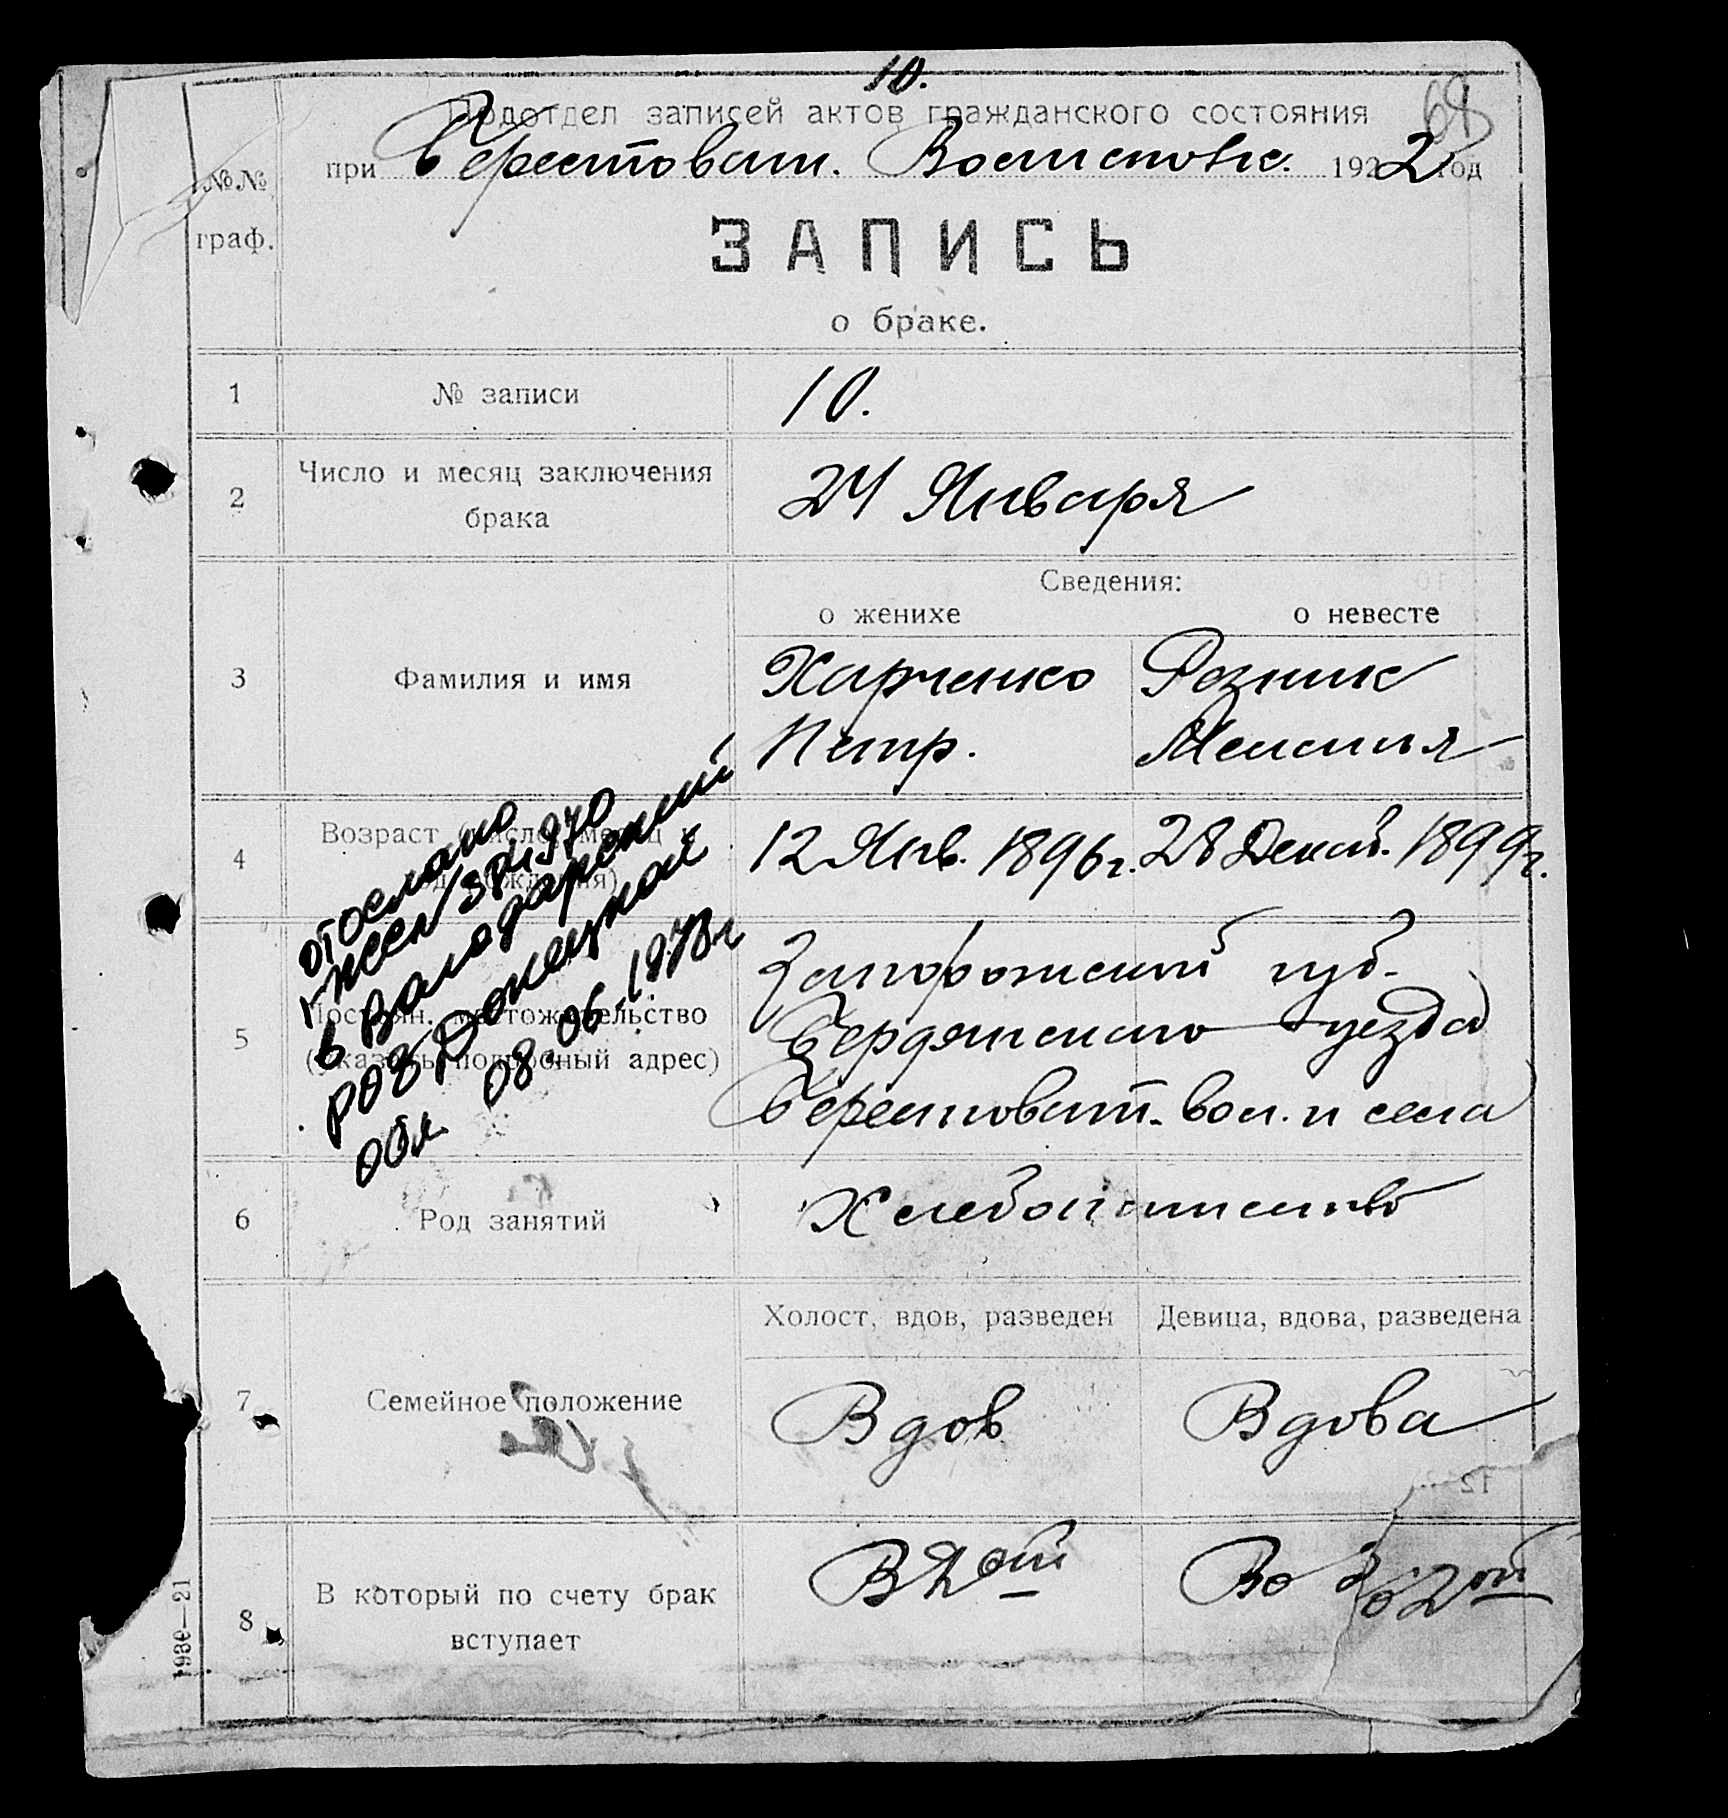 10.
Подотдел записей актов гражданского состояния
68
при Берестоват. Волисполк. 1922 год
№№ граф.
ЗАПИСЬ
о браке.
1 № записи 10.
2 Число и месяц заключения брака 24 Января
Сведения:
о женихе о невесте
3 Фамилия и имя
Харченко Резник
Петр. Мелания
4 Возраст (число, месяц и год рождения) 12 Янв. 1896 г. 28 Декаб. 1899 г.
5 Постоян. местожительство
(указать подробный адрес)
Запорожской губ.
Бердянского уезда
Берестоват. вол. и села
отослано
в Володарский
Донецкой
обл. 08.06.1978 г
6 Род занятий Хлебопашество
7 Семейное положение
Холост, вдов, разведен Девица, вдова, разведена
Вдов Вдова
8 В который по счету брак
вступает
В 2ой Во 2ой
1930—21
12